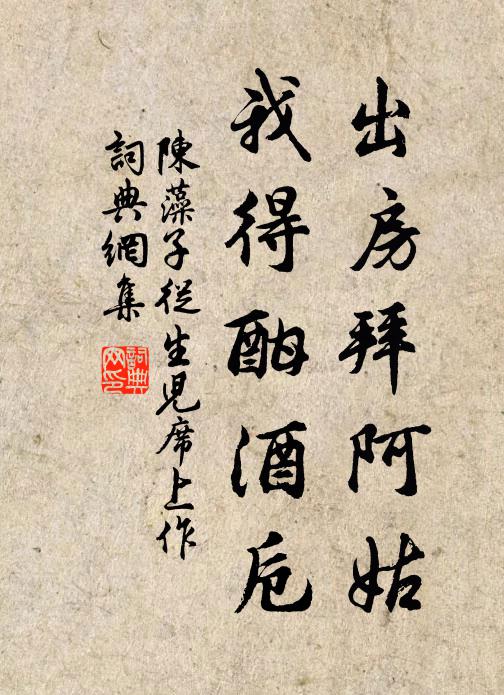 出房拜阿姑
我得酣酒卮
陳藻子從生兒席上作
詞典網集
詞典網印